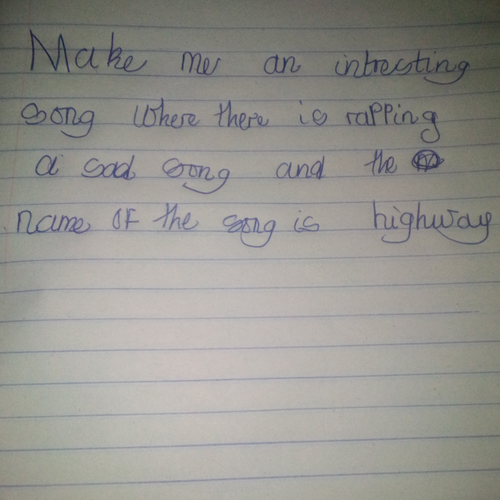 Make me an intresting
song where there is rapping
a sad song and the
name of the song is highway